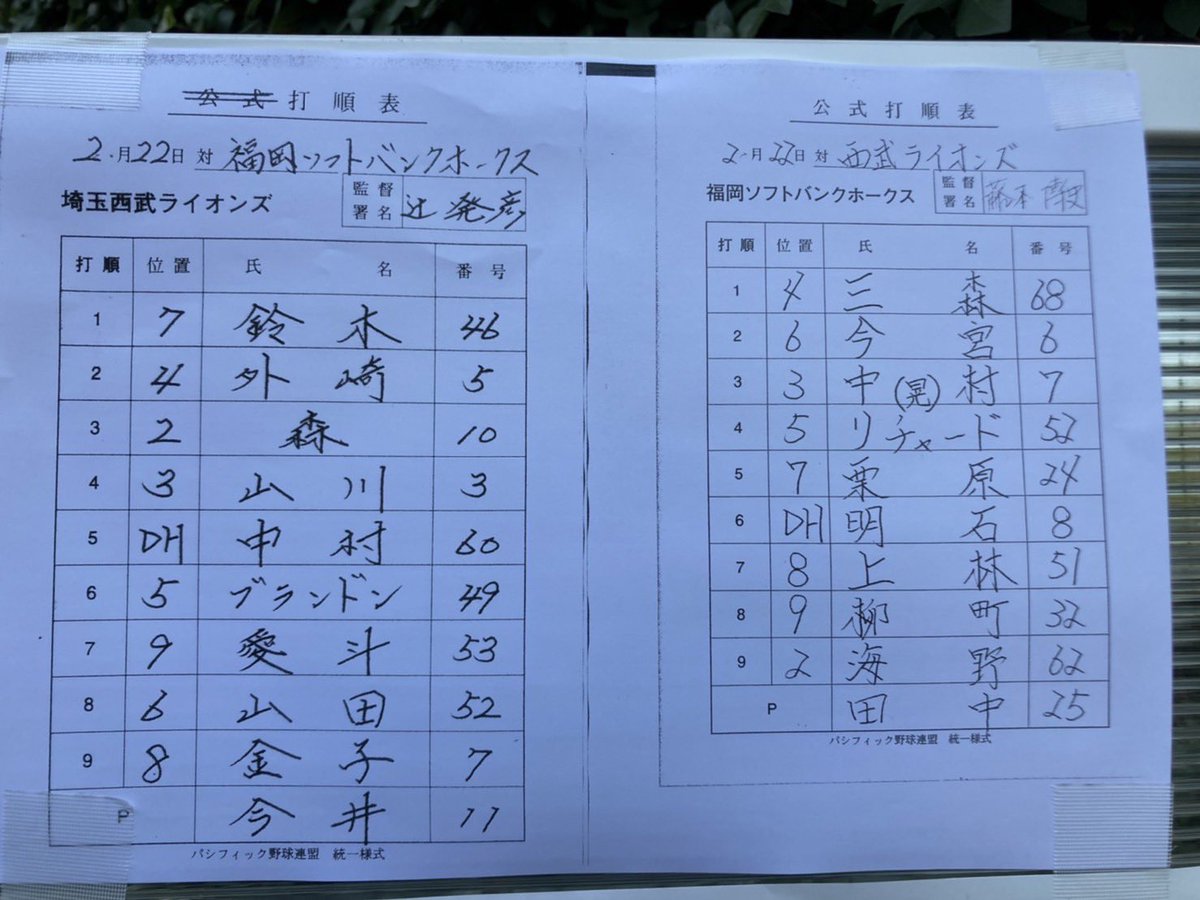 公式打順表
2月22日 対 福岡ソフトバンクホークス
埼玉西武ライオンズ 監督署名 辻発彦
打順 位置 氏名 番号
1 7 鈴木 46
2 4 外崎 5
3 2 森 10
4 3 山川 3
5 DH 中村 60
6 5 ブランドン 49
7 9 愛斗 53
8 6 山田 52
9 8 金子 7
P 今井 11
パシフィック野球連盟 統一様式
公式打順表
2月22日 対 西武ライオンズ
福岡ソフトバンクホークス 監督署名 藤本博史
打順 位置 氏名 番号
1 4 三森 68
2 6 今宮 6
3 3 中(晃)村 7
4 5 リチャード 52
5 7 栗原 24
6 DH 明石 8
7 8 上林 51
8 9 柳町 32
9 2 海野 62
P 田中 25
パシフィック野球連盟 統一様式